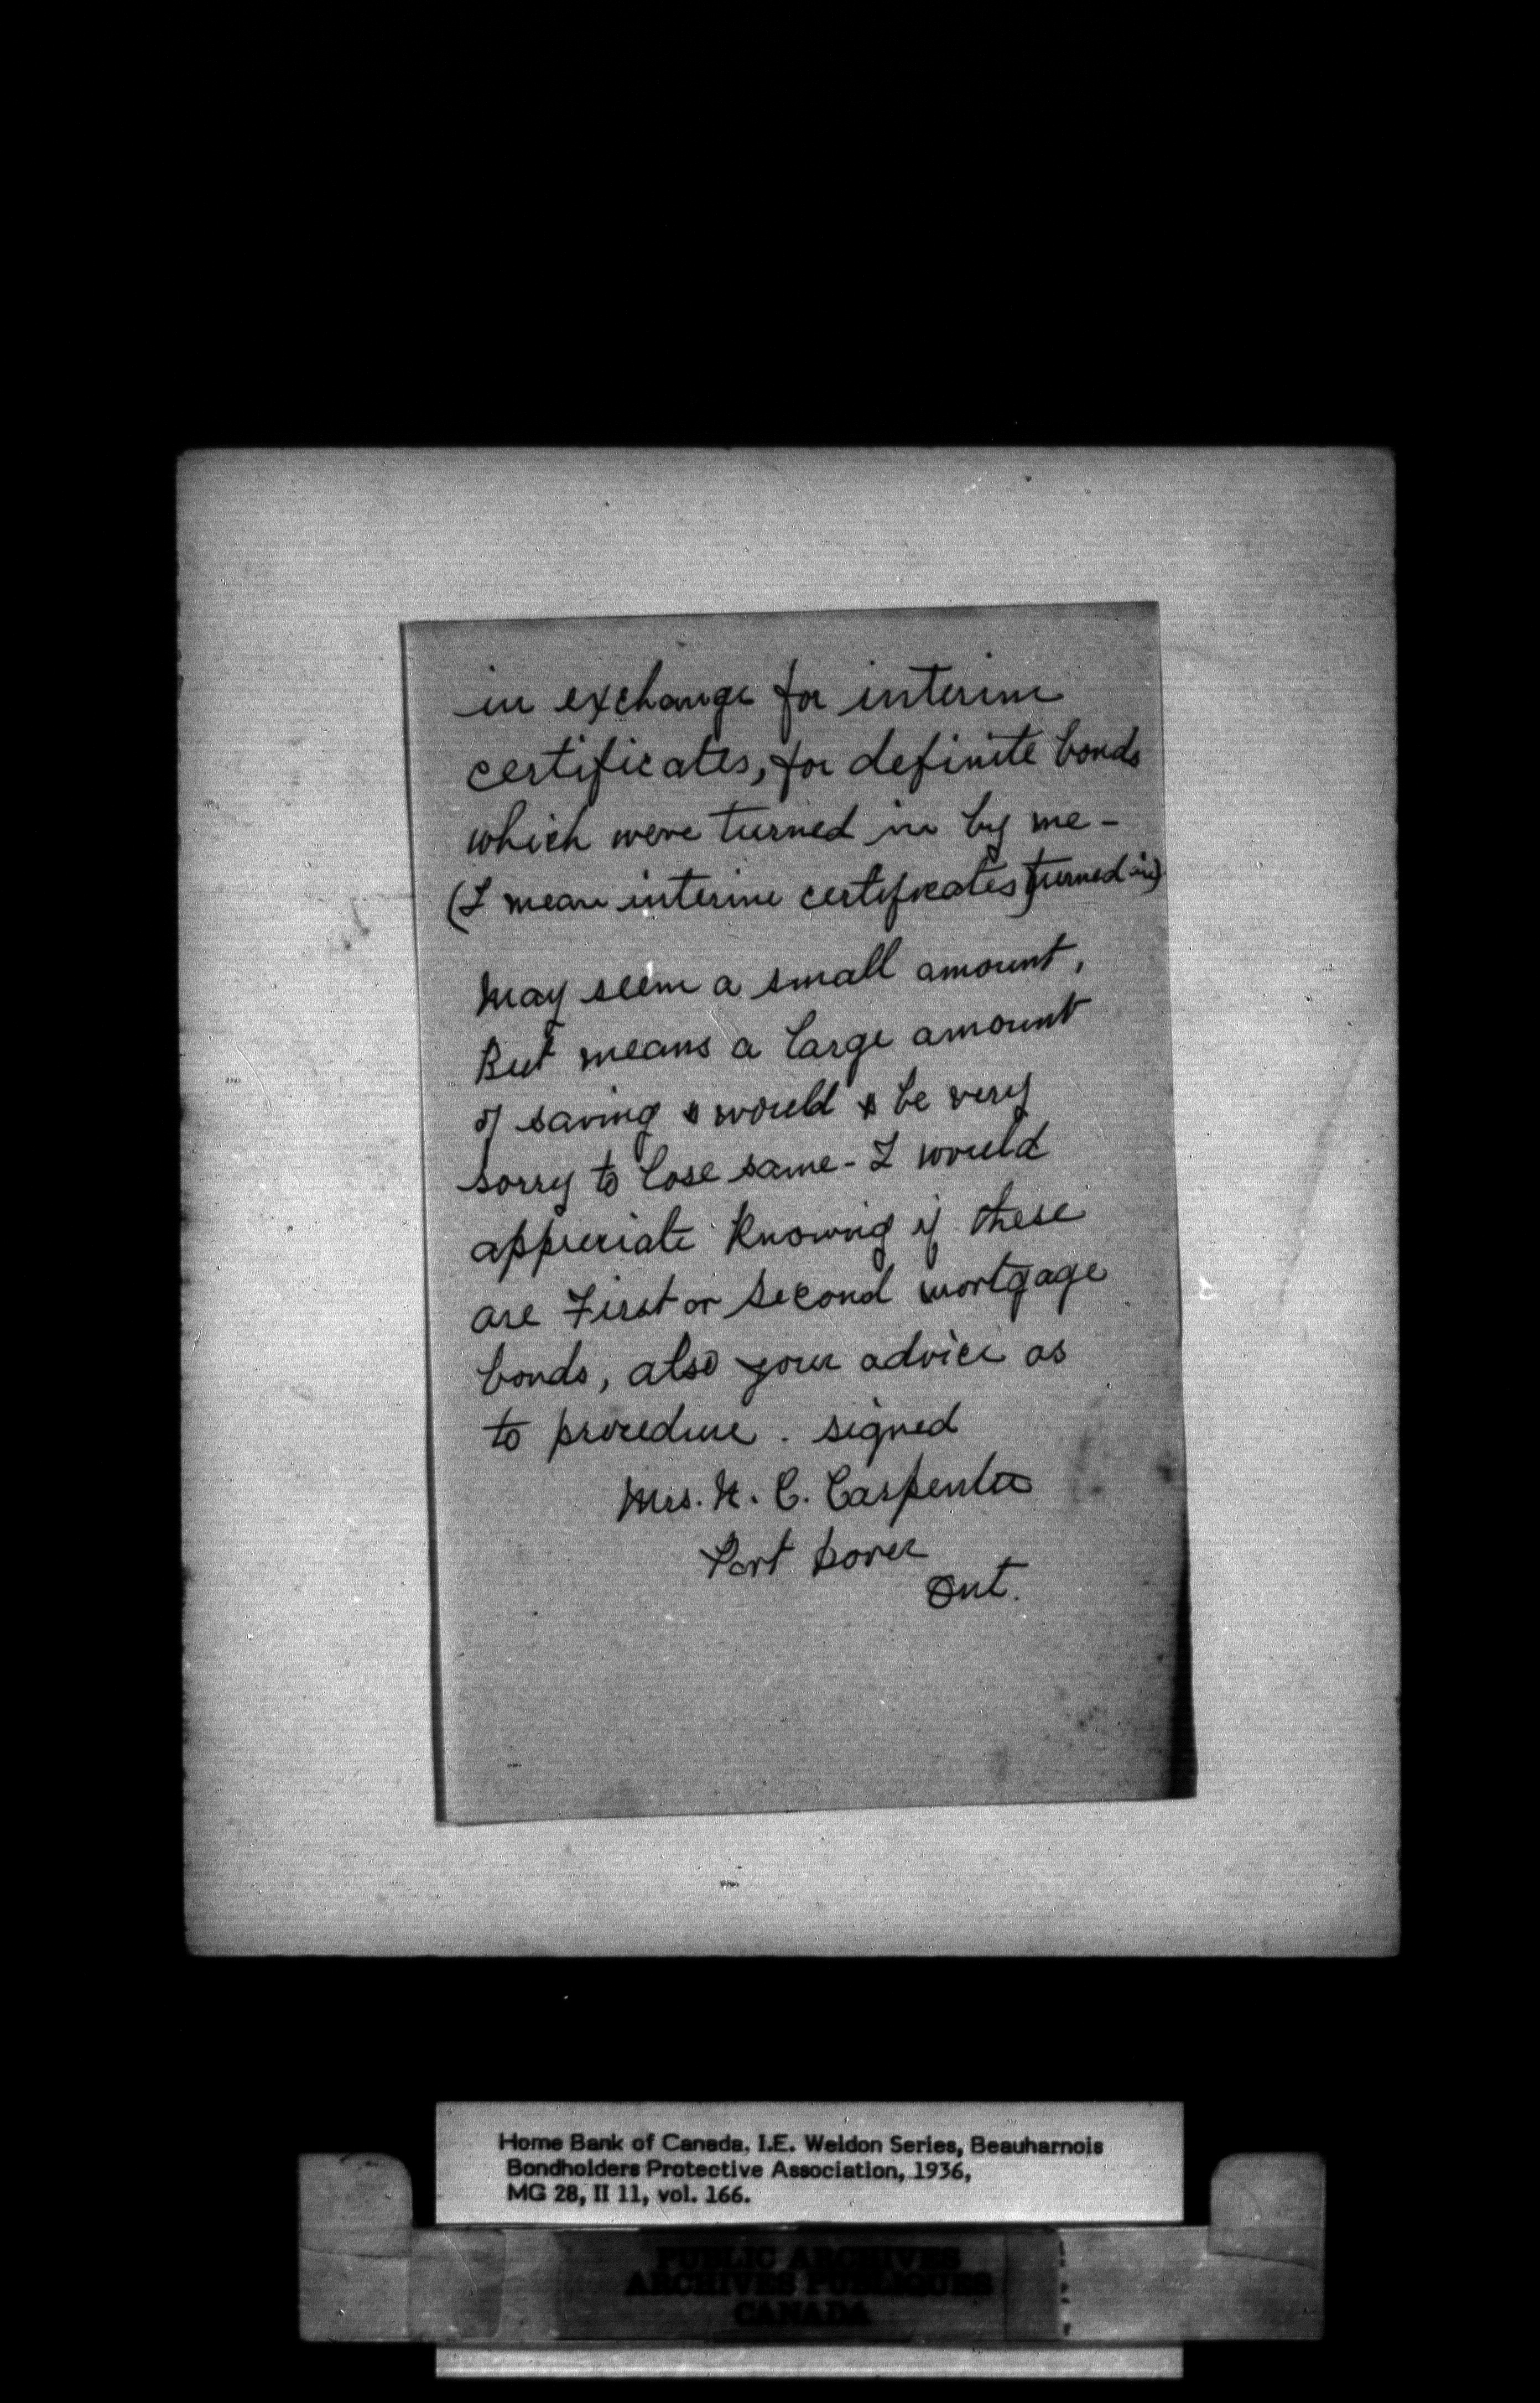 in exchange for interim
certificates, for definite bonds
which were turned in by me -
(I mean interim certificates turned in)
May seem a small amount,
But means a large amount
of saving & would & be very
sorry to lose same - I would
appreciate knowing if these
are First or Second mortgage
bonds, also your advice as
to procedure. signed
Mrs. N. C. Carpenter
Port Dover
Ont.
Home Bank of Canada, I.E. Weldon Series, Beauharnois
Bondholders Protective Association, 1936,
MG 28, II 11, vol. 166.
PUBLIC ARCHIVES
ARCHIVES PUBLIQUES
CANADA